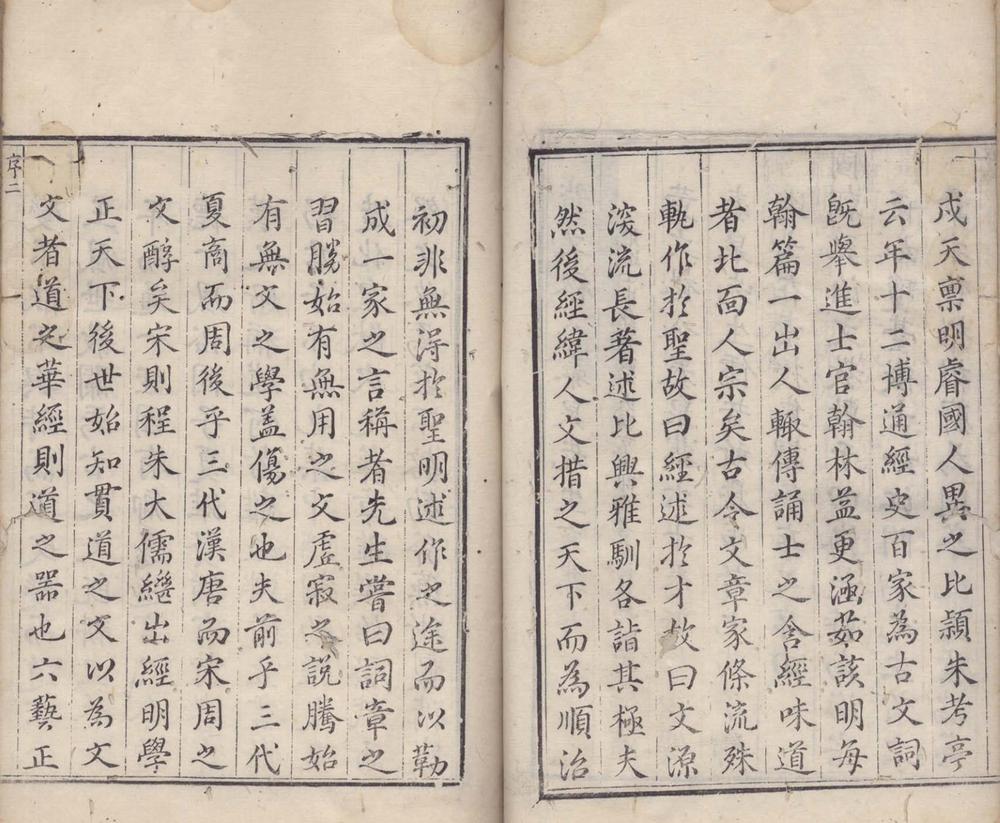 成天禀明睿國人異之比頴朱考亭
云年十二博通經史百家為古文詞
旣舉進士官翰林益更涵茹該明每
翰篇一出人輙傳誦士之含經味道
者北面人宗矣古今文章家條流殊
軌作於聖故曰經述於才故曰文源
濬流長著述比興雅馴各詣其極夫
然後經緯人文措之天下而為順治
初非無淂於聖明述作之途而以勒
成一家之言稱者先生嘗曰詞章之
習勝始有無用之文虛寂之說騰始
有無文之學盖傷之也夫前乎三代
夏商而周後乎三代漢唐而宋周之
文醇矣宋則程朱大儒繼出經明學
正天下後世始知貫道之文以為文
文者道之華經則道之器也六藝正
序二